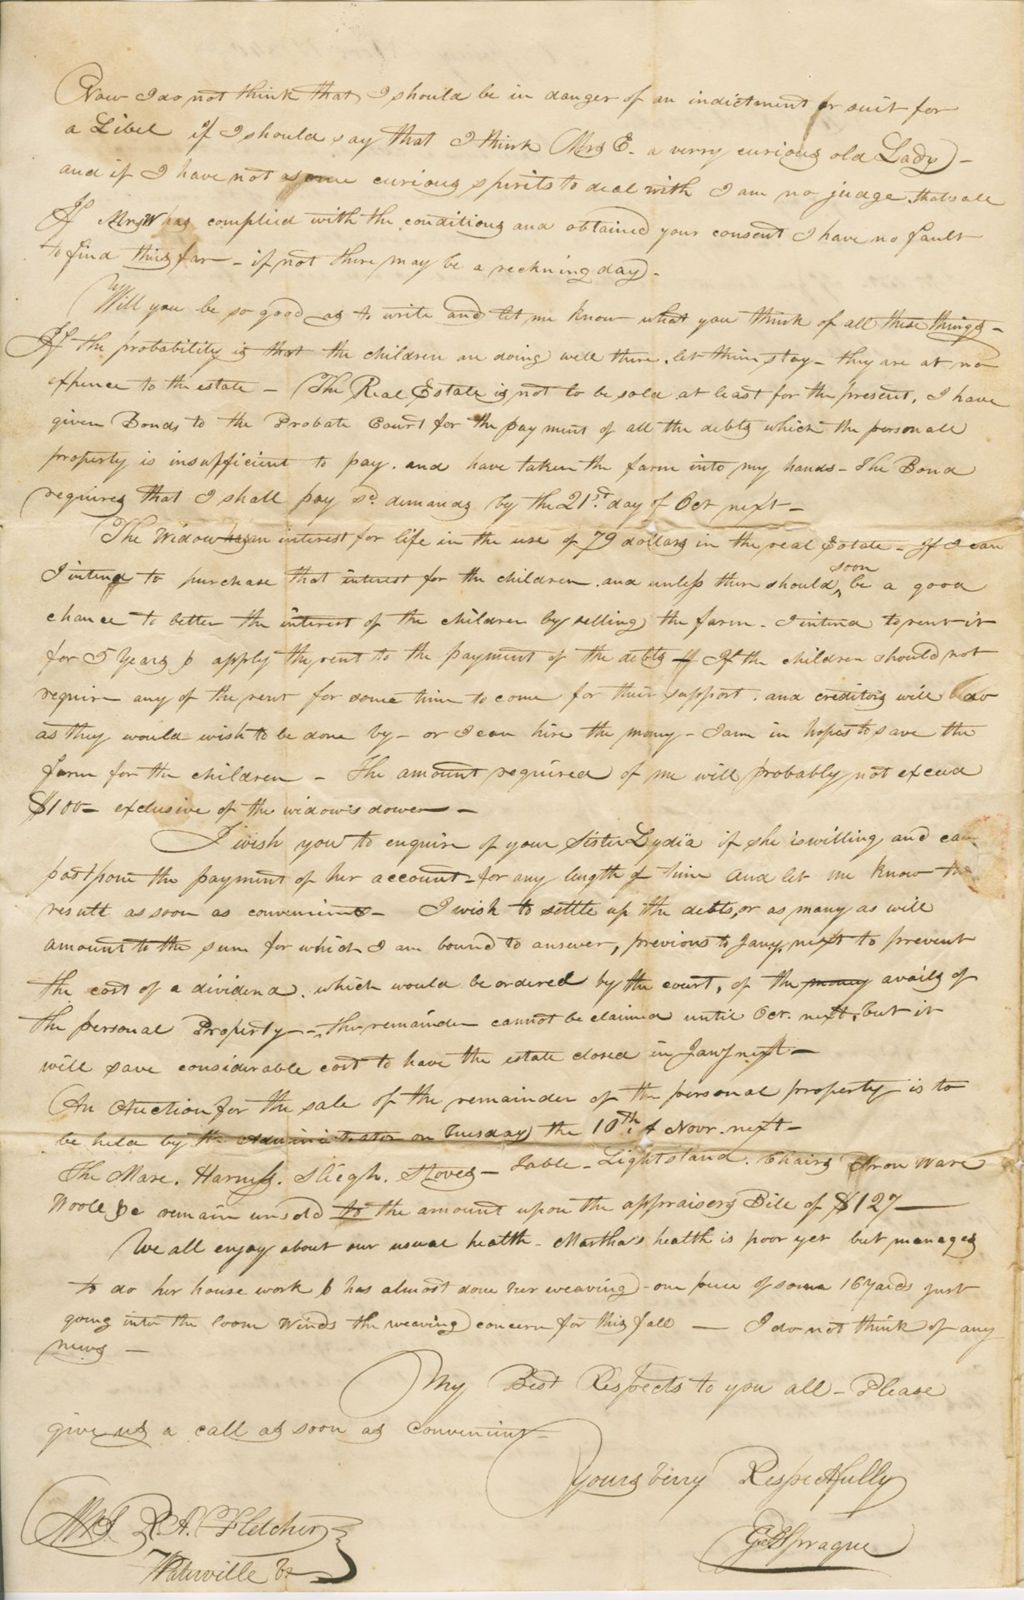 Now I do not think that I should be in danger of an indictment or suit for
a Libel if I should say that I think Mrs E. a verry curious old Lady -
and if I have not some curious spirits to deal with I am no judge. thats all
If Mrs W has complied with the conditions and obtained your consent I have no fault
to find thus far - if not there may be a reckning day -
Will you be so good as to write and let me know what you think of all these things -
If the probability is that the children are doing well there. let them stay - they are at no
expence to the estate - The Real Estate is not to be sold at least for the present, I have
given Bonds to the Probate Court for the payment of all the debts which the personall
property is insufficient to pay. and have taken the farm into my hands - The Bond
requires that I shall pay sd. demands by the 21st. day of Oct next -
The Widow has an interest for life in the use of 79 dollars in the real Estate - If I can
I intend to purchase that interest for the children. and unless there should soon be a good
chance to better the interest of the children by selling the farm. I intend to rent it
for 5 Years & apply the rent to the payment of the debts - If the children should not
require any of the rent for some time to come for their support. and creditors will do
as they would wish to be done by - or I can hire the mony - I am in hopes to save the
farm for the children - The amount required of me will probably not exceed
$100 - exclusive of the widow's dower -
I wish you to enquire of your Sister Lydia if she is willing and can
postpone the payment of her account - for any length of time and let me know the
result as soon as convenient - I wish to settle up the debts, or as many as will
amount to the sum for which I am bound to answer, previous to Jany. next to prevent
the cost of a dividend. which would be ordered by the court, of the mony avails of
the personal Property - the remainder cannot be claimed until Oct. next, but it
will save considerable cost to have the estate closed in Jany next -
An Auction for the sale of the remainder of the personal property is to
be held by the Administrator on Tuesday the 10th. of Novr. next -
The Mare. Harness. Sleigh. Stoves - Table - Lightstand. Chairs Iron Ware
Wool &c remain unsold to the amount upon the appraisers Bill of $127 -
We all enjoy about our usual health - Martha's health is poor yet but manages
to do her house work & has almost done her weaving - one piece of some 16 yards just
going into the loom winds the weaving concern for this fall - I do not think of any
news -
My Best Respects to you all - Please
give us a call as soon as convenient -
Yours verry Respectfully
G Sprague
Mrs R. A. Fletcher
Waterville Vt